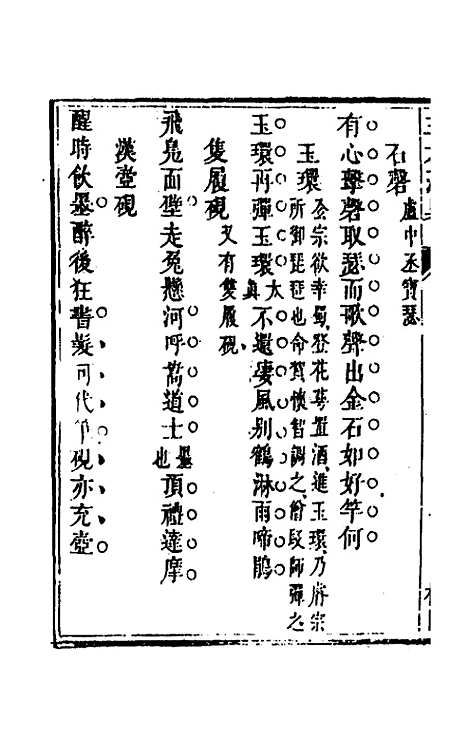 石磬盧中丞寶瑟
有心擊磬取瑟而歌聲出金石如好竽何
玉環玄宗欲幸蜀登花萼置酒進玉環乃睿宗
所御琵琶也命賀懷智調之曾段師彈之
玉環再彈玉環太真不還凄風别鶴淋雨啼鵑
隻履硯又有雙履硯
飛鳧面壁走兔懸河呼嵩道士墨也頂禮達摩
漢壺硯
醒時飲墨醉後狂書髮可代筆硯亦充壺